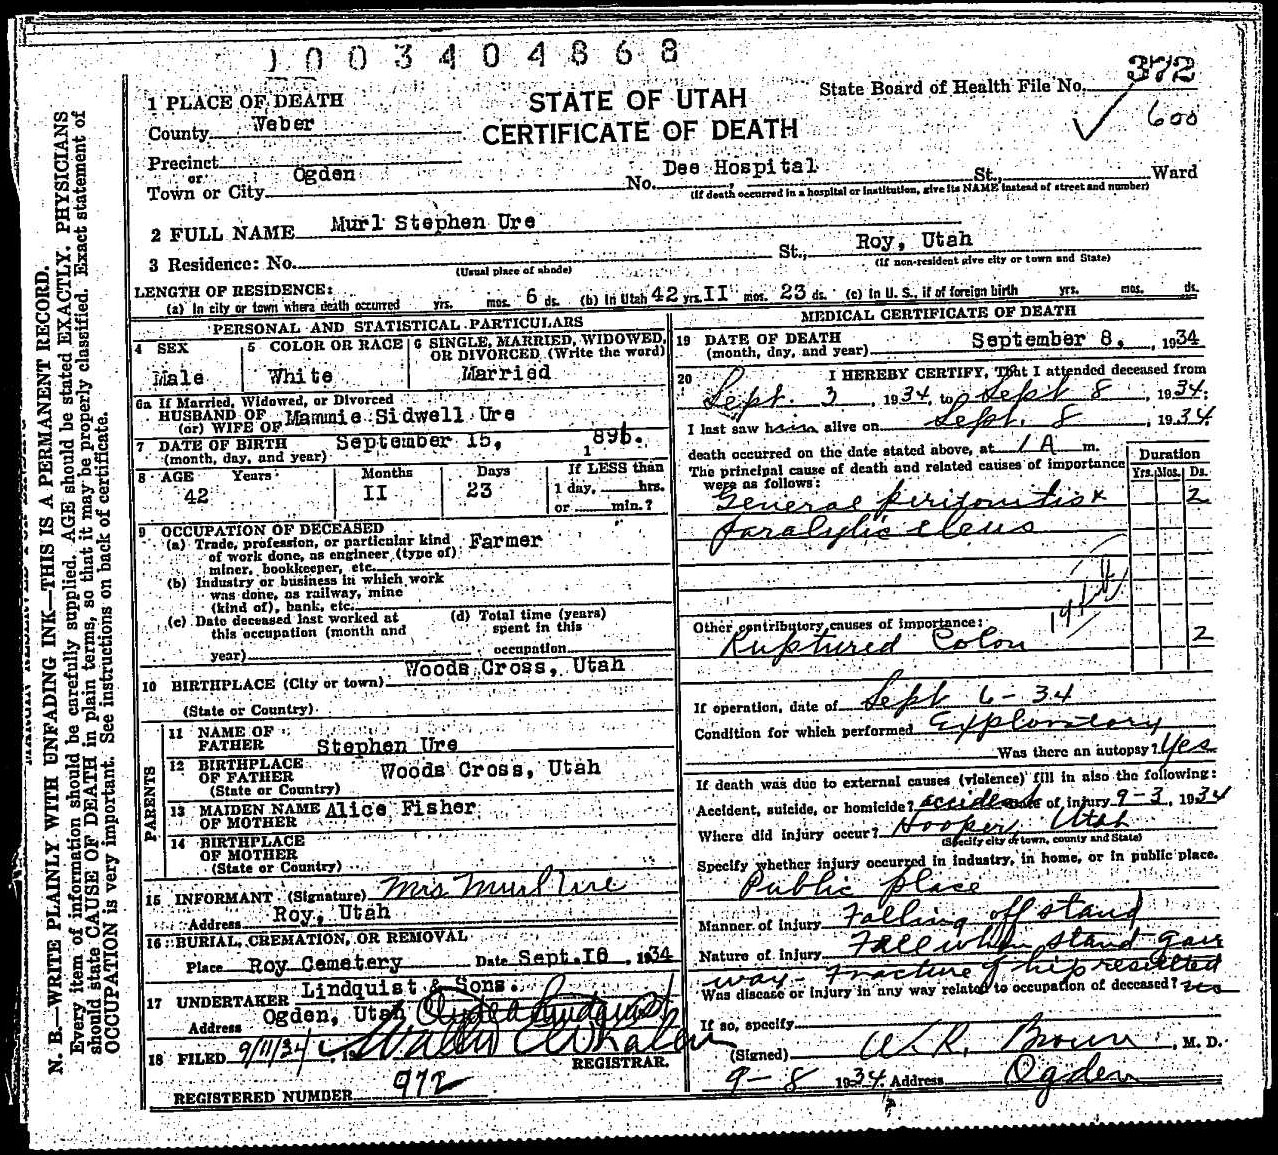 1003404868
372
600
State Board of Health File No.
STATE OF UTAH
CERTIFICATE OF DEATH
1 PLACE OF DEATH
County Weber
Precinct
or
Town or City Ogden No. Dee Hospital St., Ward
(If death occurred in a hospital or institution, give its NAME instead of street and number)
2 FULL NAME Murl Stephen Ure
3 Residence: No. St., Roy, Utah
(Usual place of abode) (If non-resident give city or town and State)
LENGTH OF RESIDENCE:
(a) In city or town where death occurred yrs. mos. 6 ds. (b) In Utah 42 yrs. II mos. 23 ds. (c) In U. S., if of foreign birth yrs. mos. ds.
PERSONAL AND STATISTICAL PARTICULARS
4 SEX Male
5 COLOR OR RACE White
6 SINGLE, MARRIED, WIDOWED, OR DIVORCED (Write the word) Married
6a If Married, Widowed, or Divorced
HUSBAND OF
(or) WIFE OF Mammie Sidwell Ure
7 DATE OF BIRTH September 15,
(month, day, and year)
8 AGE Years 42 Months II Days 23 If LESS than
1 day, hrs.
or min.?
9 OCCUPATION OF DECEASED
(a) Trade, profession, or particular kind
of work done, as engineer (type of)
miner, bookkeeper, etc. Farmer
(b) Industry or business in which work
was done, as railway, mine
(kind of), bank, etc.
(c) Date deceased last worked at
this occupation (month and
year)
(d) Total time (years)
spent in this
occupation
10 BIRTHPLACE (City or town) Woods Cross, Utah
(State or Country)
PARENTS
11 NAME OF
FATHER Stephen Ure
12 BIRTHPLACE
OF FATHER Woods Cross, Utah
(State or Country)
13 MAIDEN NAME
OF MOTHER Alice Fisher
14 BIRTHPLACE
OF MOTHER
(State or Country)
15 INFORMANT (Signature) Mrs Murl Ure
Address Roy, Utah
16 BURIAL, CREMATION, OR REMOVAL
Place Roy Cemetery Date Sept. I0 , 1934
17 UNDERTAKER Lindquist & Sons.
Address Ogden, Utah
18 FILED 9/11/34 19 Walter Whalen
REGISTRAR.
REGISTERED NUMBER 972
MEDICAL CERTIFICATE OF DEATH
19 DATE OF DEATH
(month, day, and year) September 8, , 1934
20 I HEREBY CERTIFY, That I attended deceased from
Sept. 3 , 1934, to Sept 8 , 1934;
I last saw him alive on Sept. 8 , 1934.
death occurred on the date stated above, at 1 A m.
The principal cause of death and related causes of importance
were as follows:
Duration
Yrs. Mos. Ds.
General peritonitis & 2
paralytic eleus
Other contributory causes of importance:
Ruptured Colon 2
If operation, date of Sept 6 - 34
Condition for which performed Exploratory
Was there an autopsy? Yes
If death was due to external causes (violence) fill in also the following:
Accident, suicide, or homicide? accident Date of injury 9-3, 1934
Where did injury occur? Hooper, Utah
(Specify city or town, county and State)
Specify whether injury occurred in industry, in home, or in public place.
Public place
Manner of injury Falling off stand
Nature of injury Fall when stand gave
way - Fracture of hip resulted
Was disease or injury in any way related to occupation of deceased? no
If so, specify
(Signed) W. R. Brown , M. D.
9 - 8 1934 Address Ogden
N. B.—WRITE PLAINLY WITH UNFADING INK—THIS IS A PERMANENT RECORD.
Every item of information should be carefully supplied. AGE should be stated EXACTLY. PHYSICIANS
should state CAUSE OF DEATH in plain terms, so that it may be properly classified. Exact statement of
OCCUPATION is very important. See instructions on back of certificate.